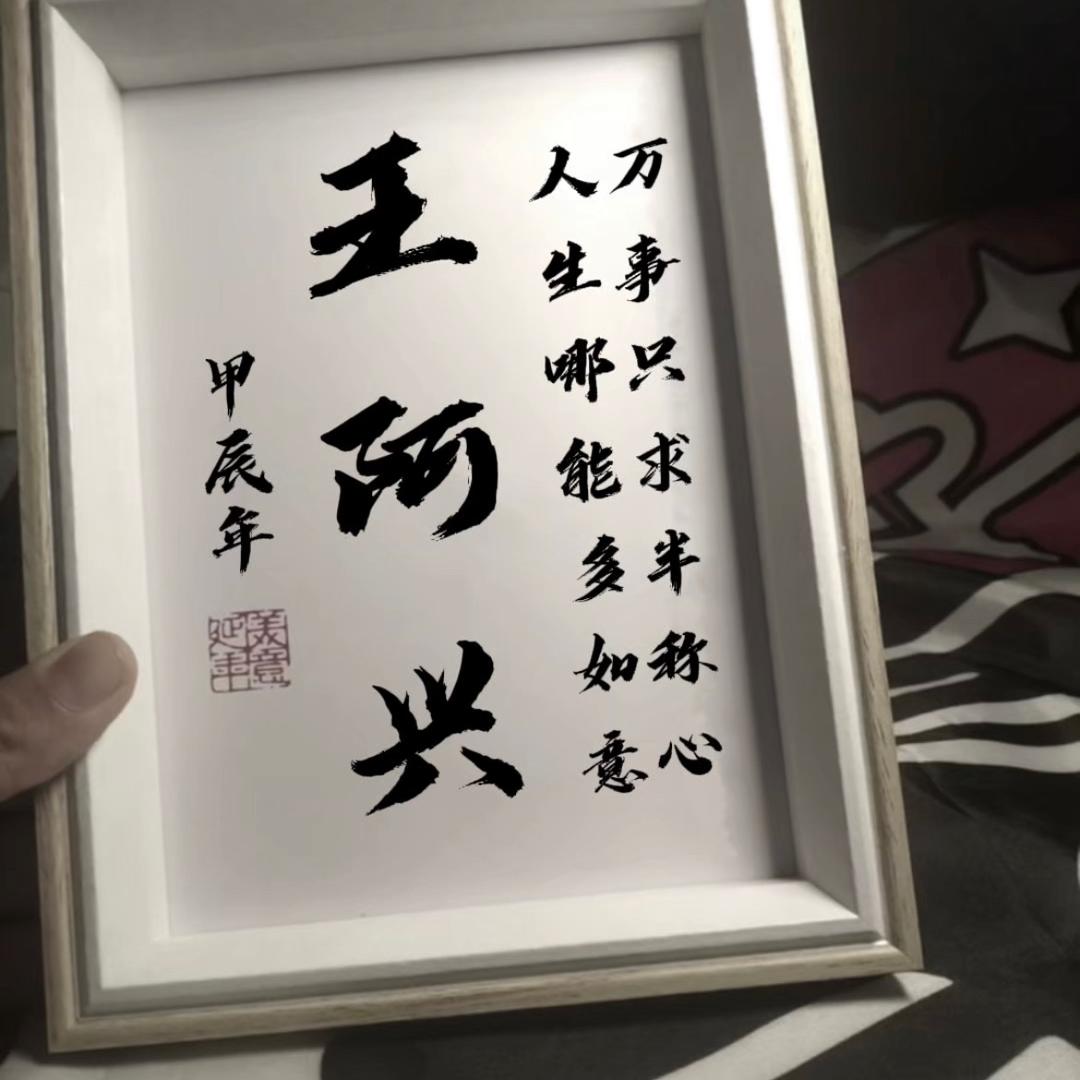 万事只求半称心
人生哪能多如意
王阿兴
甲辰年
美意延年